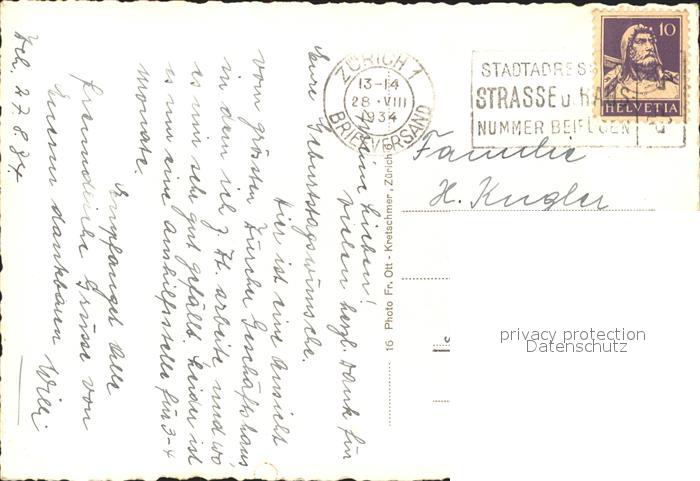 Zch. 27.8.34
Meine Lieben!
Vielen herzl. Dank für
Eure Geburtstagswünsche.
Hier ist eine Ansicht
vom grössten Zürcher Geschäftshaus,
in dem ich z. Zt. arbeite und wo
es mir sehr gut gefällt. Leider ist
es nur eine Aushilfsstelle für 3-4
Monate.
Empfanget alle
freundliche Grüsse von
Eurem dankbaren Willi
16 Photo Fr. Ott - Kretschmer, Zürich 6
ZÜRICH 1
13-14
28.VIII
1934
BRIEFVERSAND
STADTADRESS
STRASSE U. HAUS-
NUMMER BEIFÜGEN
10
HELVETIA
Familie
H. Kugler
privacy protection
Datenschutz